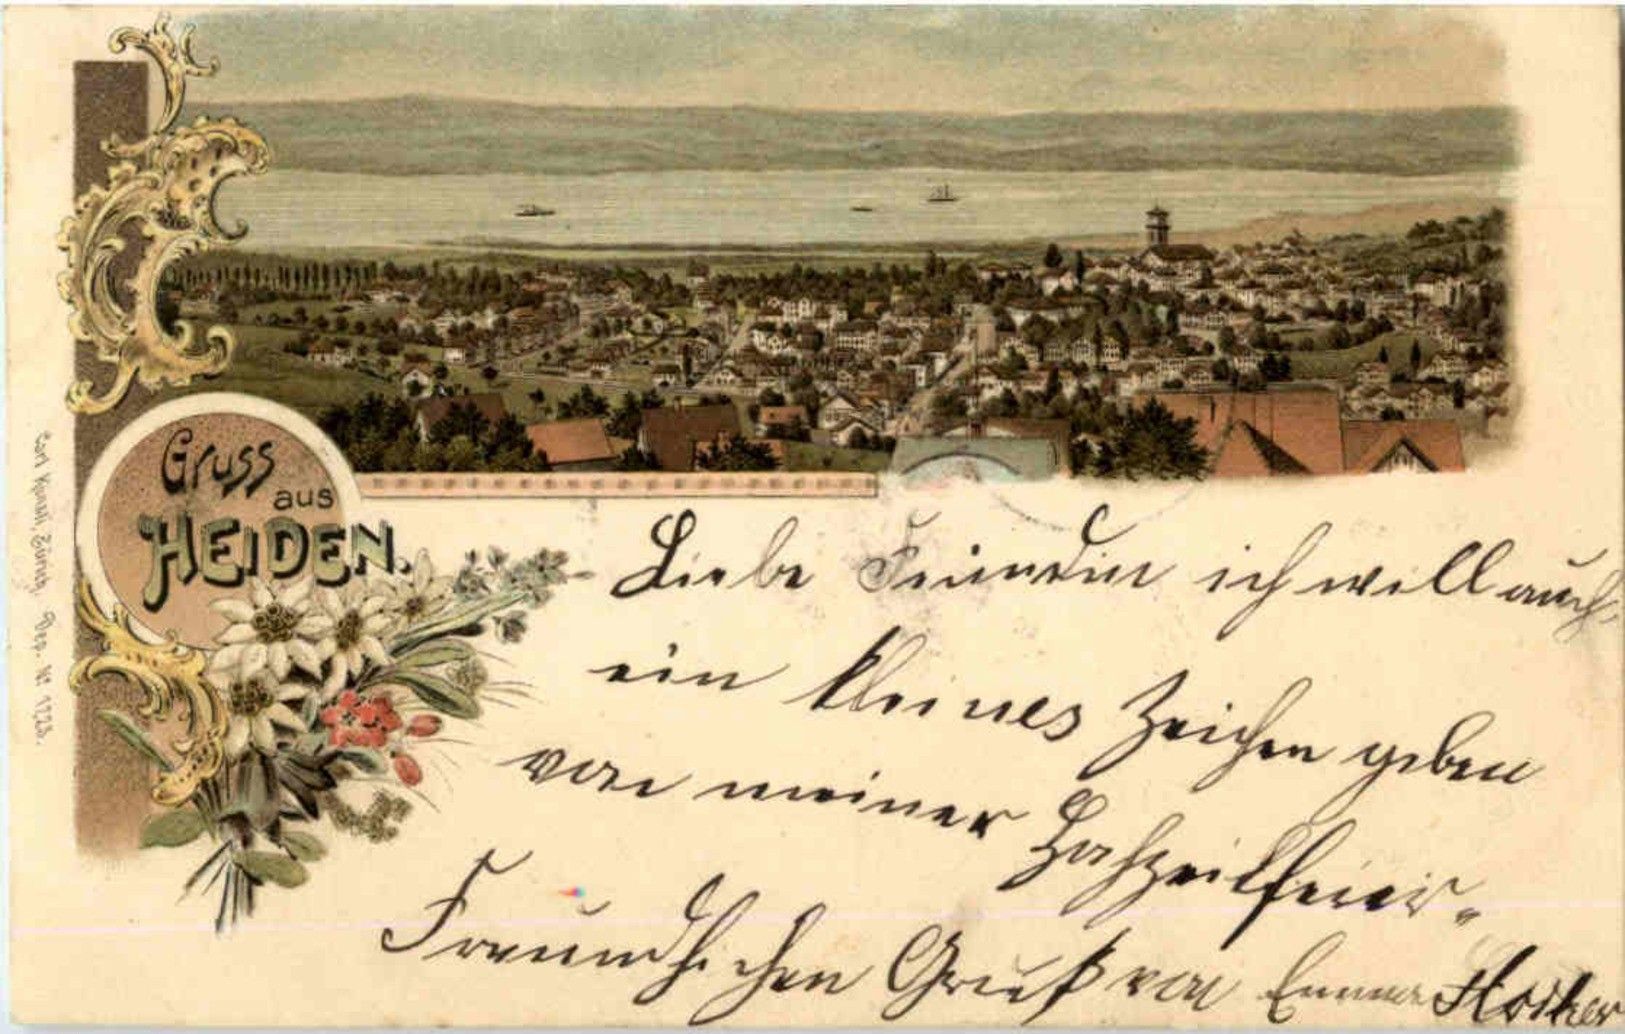 Gruss
aus
HEIDEN.
Carl Künzli, Zürich, Dep. N: 1723.
Liebe Freundin ich will auch
ein kleines Zeichen geben
von meiner Hochzeitfeier.
Freundlichen Gruß von Emma